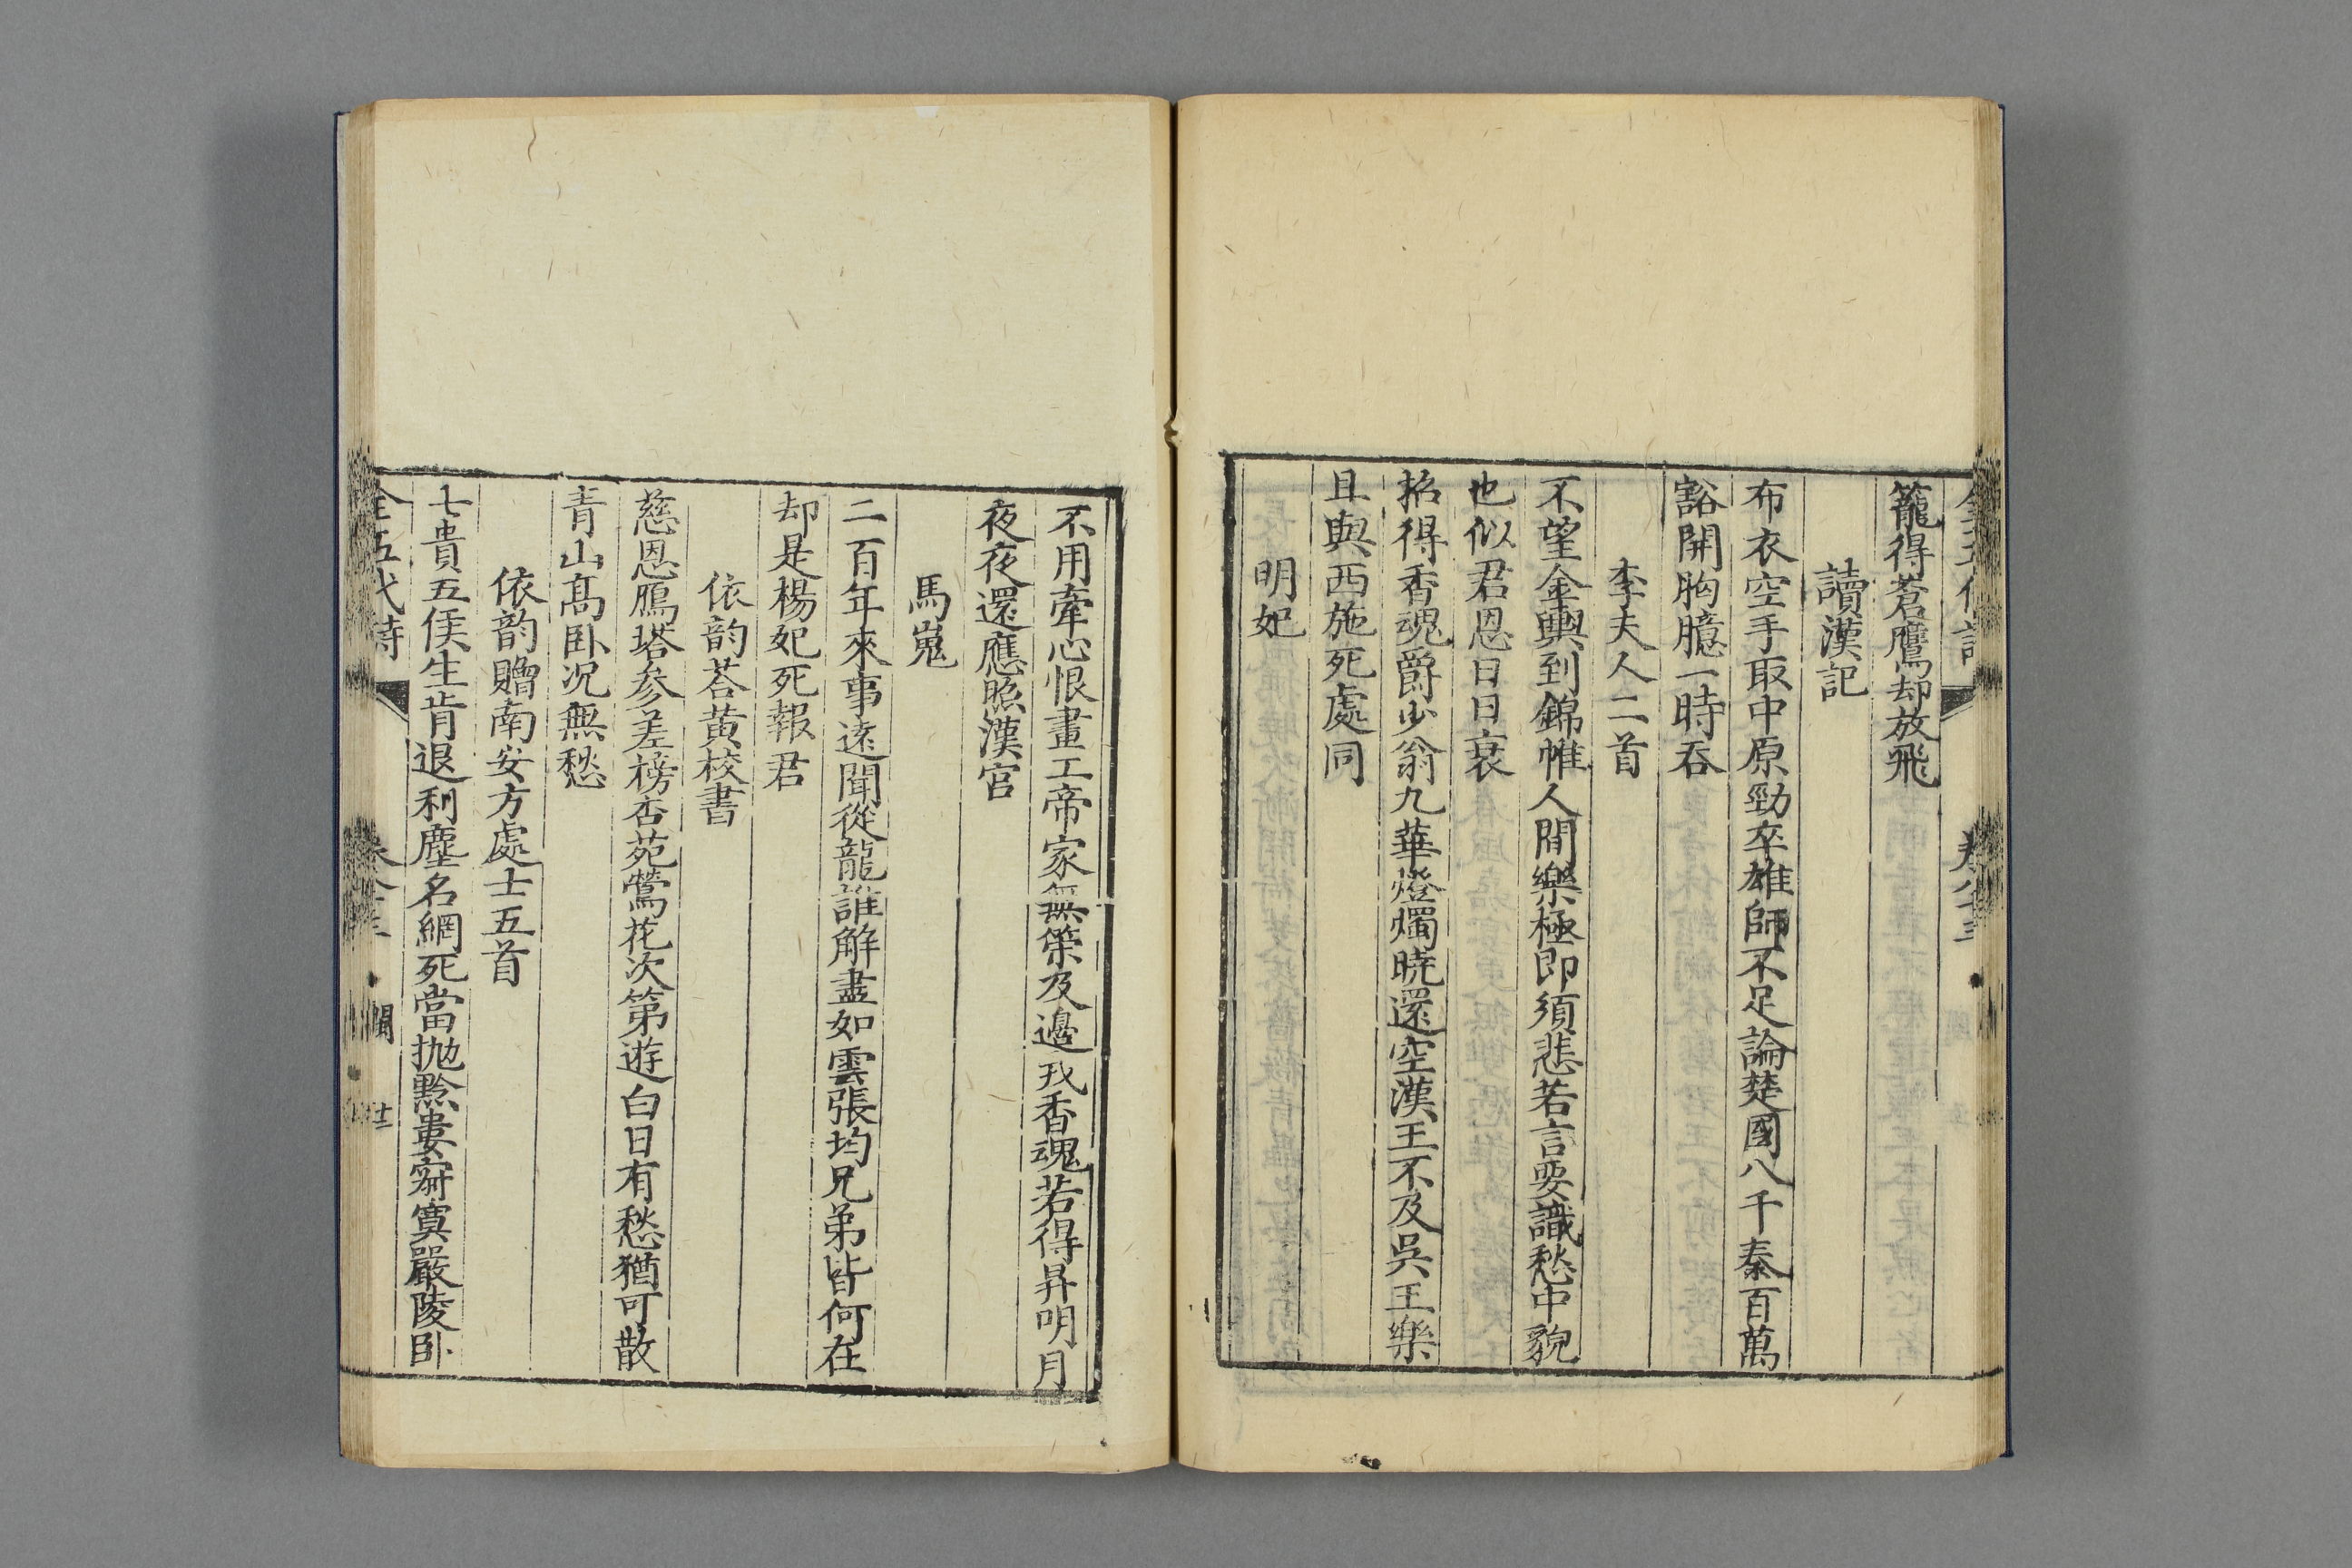 籠得蒼鷹却放飛
讀漢記
布衣空手取中原勁卒雄師不足論楚國八千秦百萬
豁開胸臆一時吞
李夫人二首
不望金輿到錦帷人間樂極即須悲若言要識愁中貌
也似君恩日日衰
招得香魂爵少翁九華燈燭曉還空漢王不及吳王樂
且與西施死處同
明妃
不用牽心恨畫工帝家無策及邊戎香魂若得昇明月
夜夜還應照漢宮
馬嵬
二百年來事遠聞從龍誰解盡如雲張均兄弟皆何在
却是楊妃死報君
依韵荅黄校書
慈恩鴈塔參差榜杏苑鶯花次第遊白日有愁猶可散
青山髙卧况無愁
依韵贈南安方處士五首
七貴五侯生肯退利塵名網死當抛黔婁寂寞嚴陵卧
全五代詩
閩